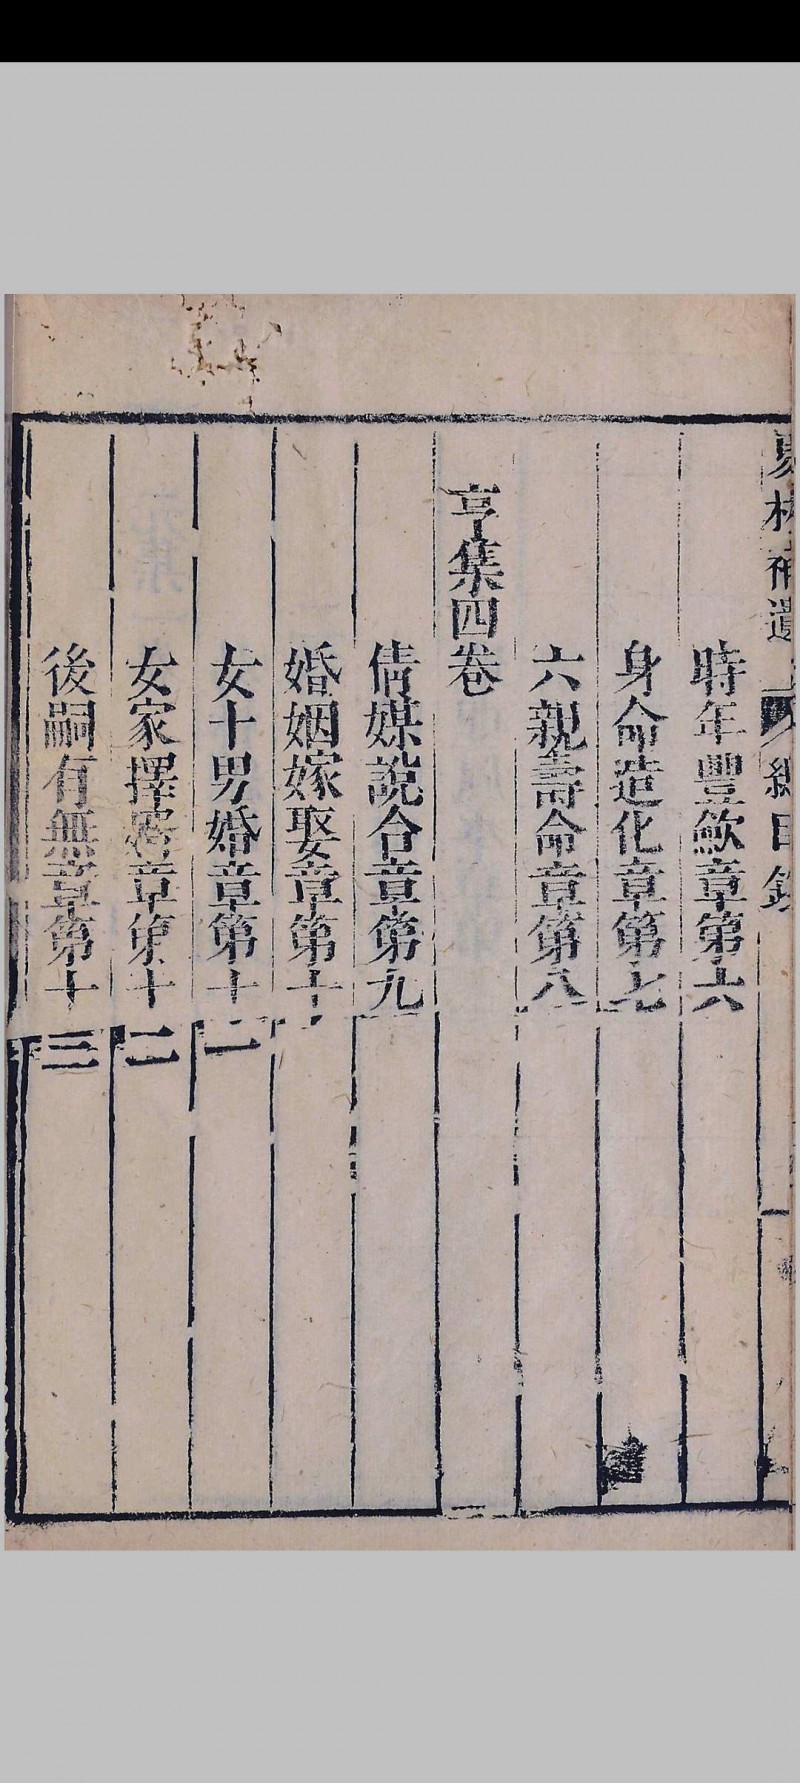 易林補遺　總目錄
時年豐歉章第六
身命造化章第七
六親壽命章第八
亨集四卷
倩媒說合章第九
婚姻嫁娶章第十
女卜男婚章第十一
女家擇婿章第十二
後嗣有無章第十三